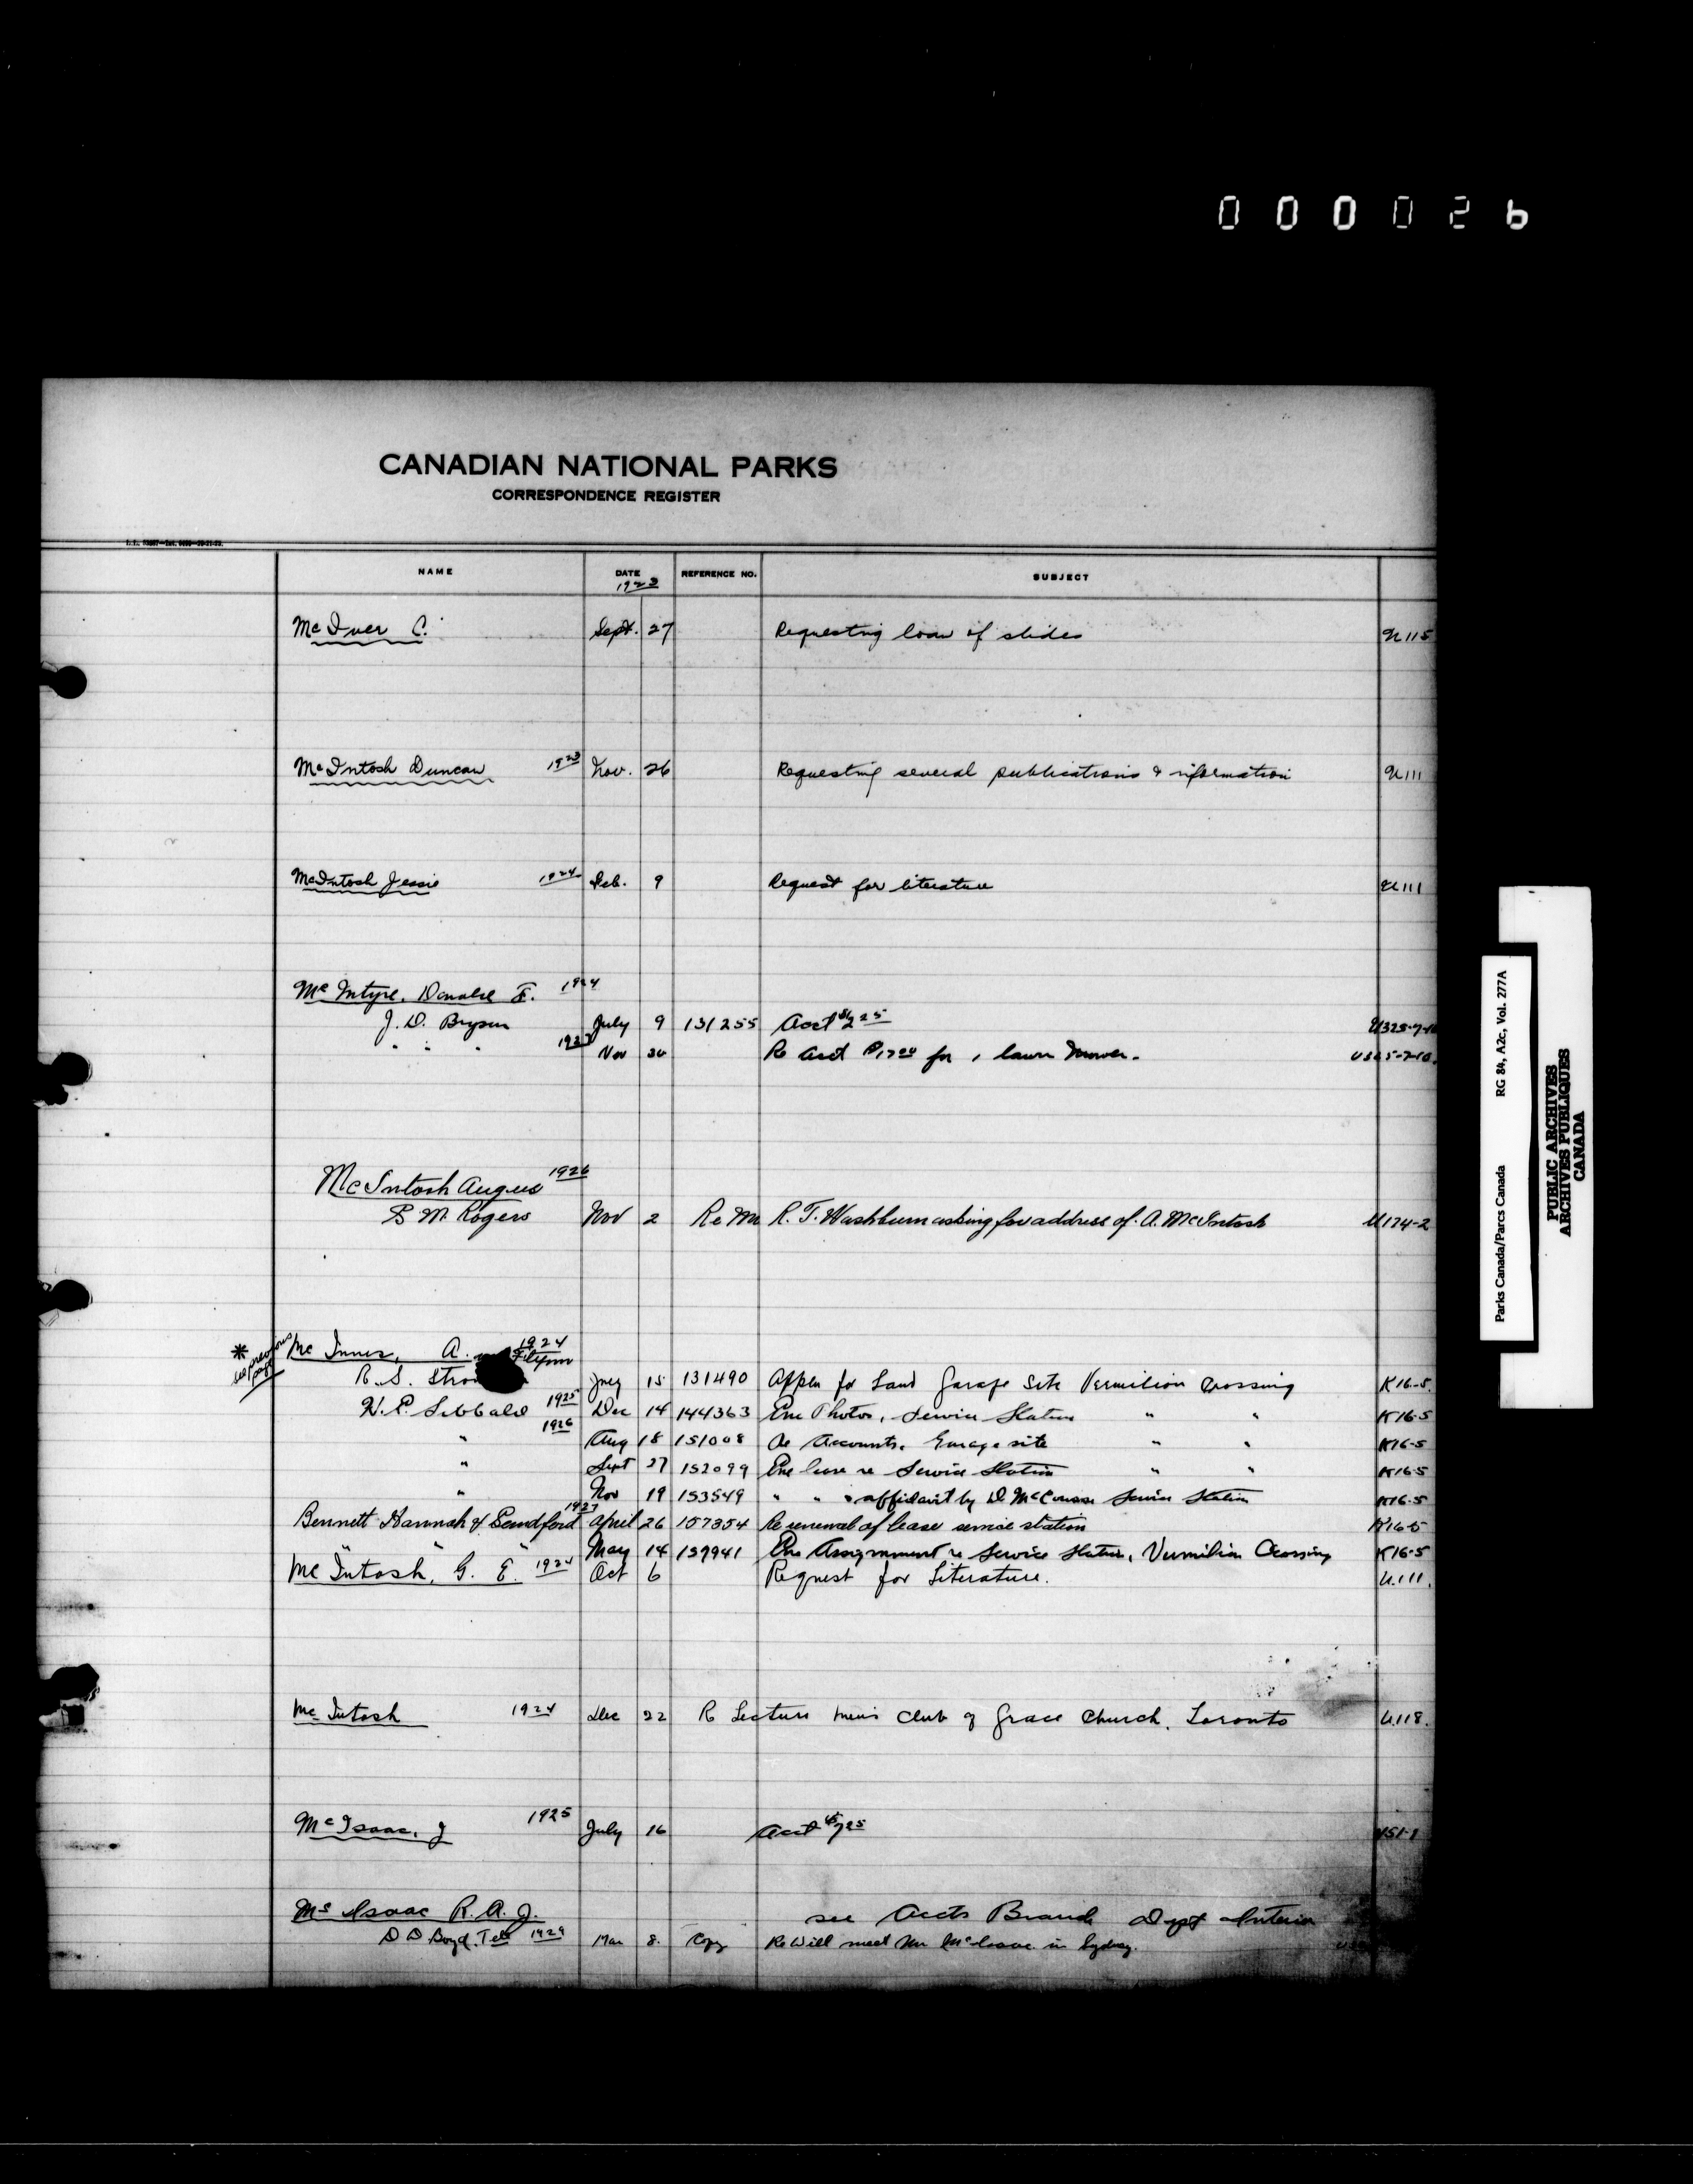 000026
CANADIAN NATIONAL PARKS
CORRESPONDENCE REGISTER
NAME DATE REFERENCE NO. SUBJECT
1923
McIver C. Sept. 27 Requesting loan of slides U115
McIntosh Duncan 1923 Nov. 26 Requesting several publications & information U111
McIntosh Jessie 1924 Feb. 9 Request for literature U111
McIntyre, Donald F. 1924
J. D. Bryson July 9 131255 Acct $2 25 U325-7-10
" " " Nov 30 Re Acct $17 00 for 1 lawn mower. U325-7-10.
McIntosh Angus 1926
B M Rogers Nov 2 Re Mr R. T. Washburn asking for address of A. McIntosh U174-2
* see previous page
McInnes, A. 1924
R. S. 15 131490 Appln for Land Garage Site Vermilion Crossing K16-5.
H. E. Sibbald 1925 Dec 14 144363 Enc Photos, Service Station " " K16-5
" 1926 Aug 18 151008 Re Accounts. Garage site " " K16-5
" Sept 27 152099 Enc lease re Service Station " " K16-5
" Nov 19 153549 " " affidavit by D. Service Station K16-5
Bennett Hannah & Sandford 1927 April 26 157354 Re renewal of lease service station K16-5
" " " May 14 159941 Enc Assignment re Service Station, Vermilion Crossing K16-5
McIntosh, G. E. 1924 Oct 6 Request for Literature. U.111.
McIntosh 1924 Dec 22 Re Lecture Men's Club of Grace Church, Toronto U.118.
McIsaac, J 1925 July 16 Acct $7 25
McIsaac R. A. J. see Accts Branch Dept Interior
D D Boyd. Tel 1929 Mar 8. Copy Re Will meet Mr McIsaac in Sydney.
Parks Canada/Parcs Canada RG 84, A2c, Vol. 277A
PUBLIC ARCHIVES
ARCHIVES PUBLIQUES
CANADA